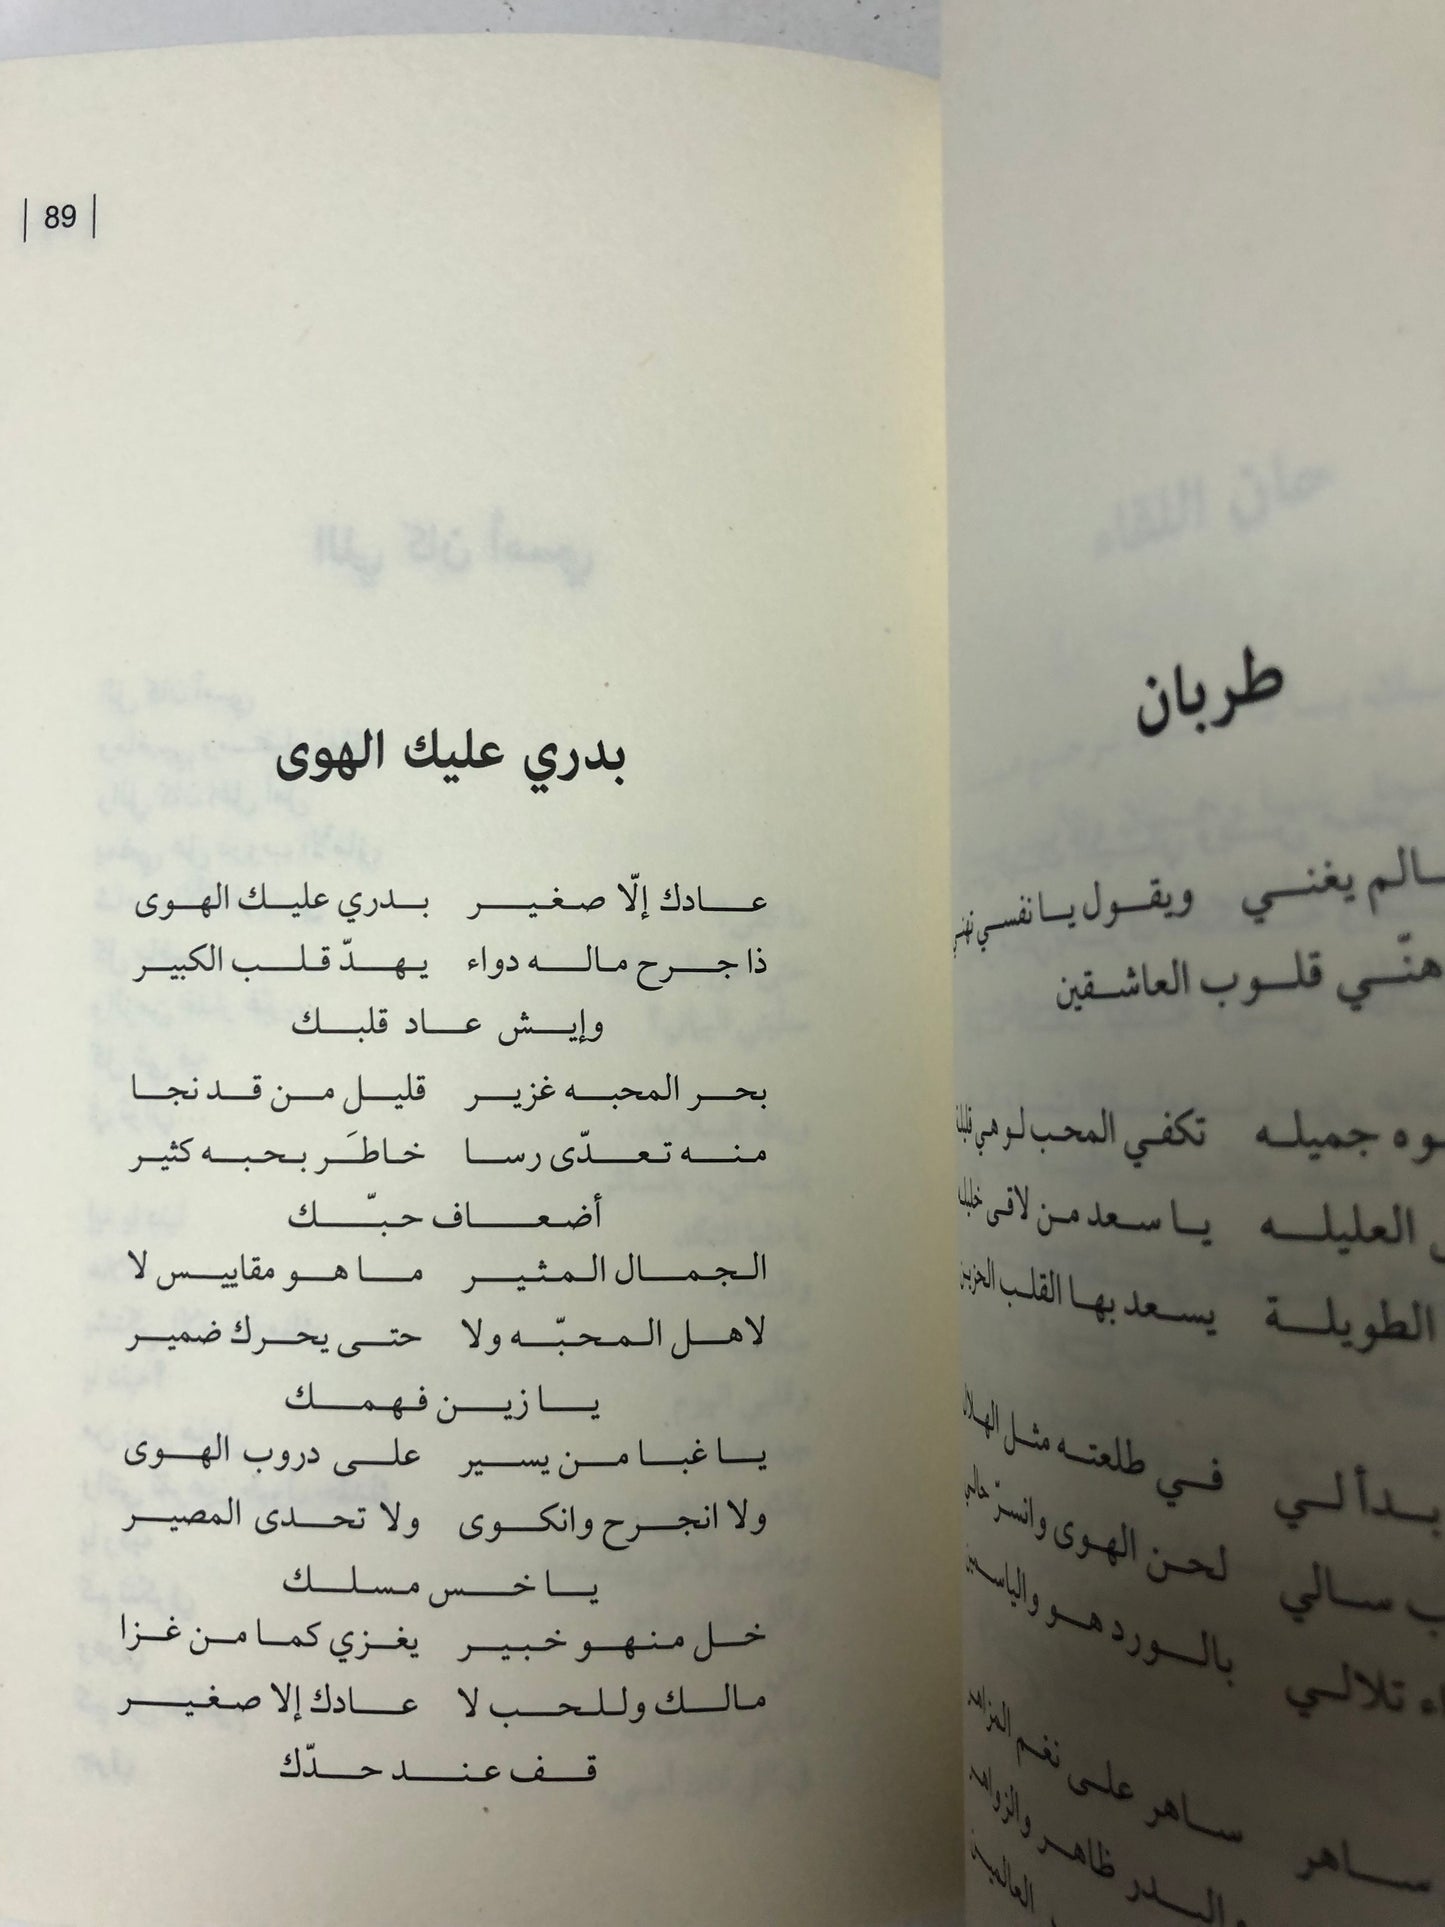 89
بدري عليك الهوى
عادك إلّا صغير بدري عليك الهوى
ذا جرح ماله دواء يهدّ قلب الكبير
وإيش عاد قلبك
بحر المحبه غزير قليل من قد نجا
منه تعدّى رسا خاطَر بحبه كثير
أضعاف حبّك
الجمال المثير ما هو مقاييس لا
لاهل المحبّه ولا حتى يحرك ضمير
يا زين فهمك
يا غبا من يسير على دروب الهوى
ولا انجرح وانكوى ولا تحدى المصير
يا خس مسلك
خل منهو خبير يغزي كما من غزا
مالك وللحب لا عادك إلا صغير
قف عند حدّك
طربان
يغني ويقول يا نفسي
قلوب العاشقين
جميله تكفي المحب لو هي
العليله يا سعد من لاقى
الطويلة يسعد بها القلب الحزين
في طلعته مثل الهلال
سالي لحن الهوى وانسر حالي
تلالي بالورد هو والياسمين
ساهر ساهر على نغم
والبدر ظاهر